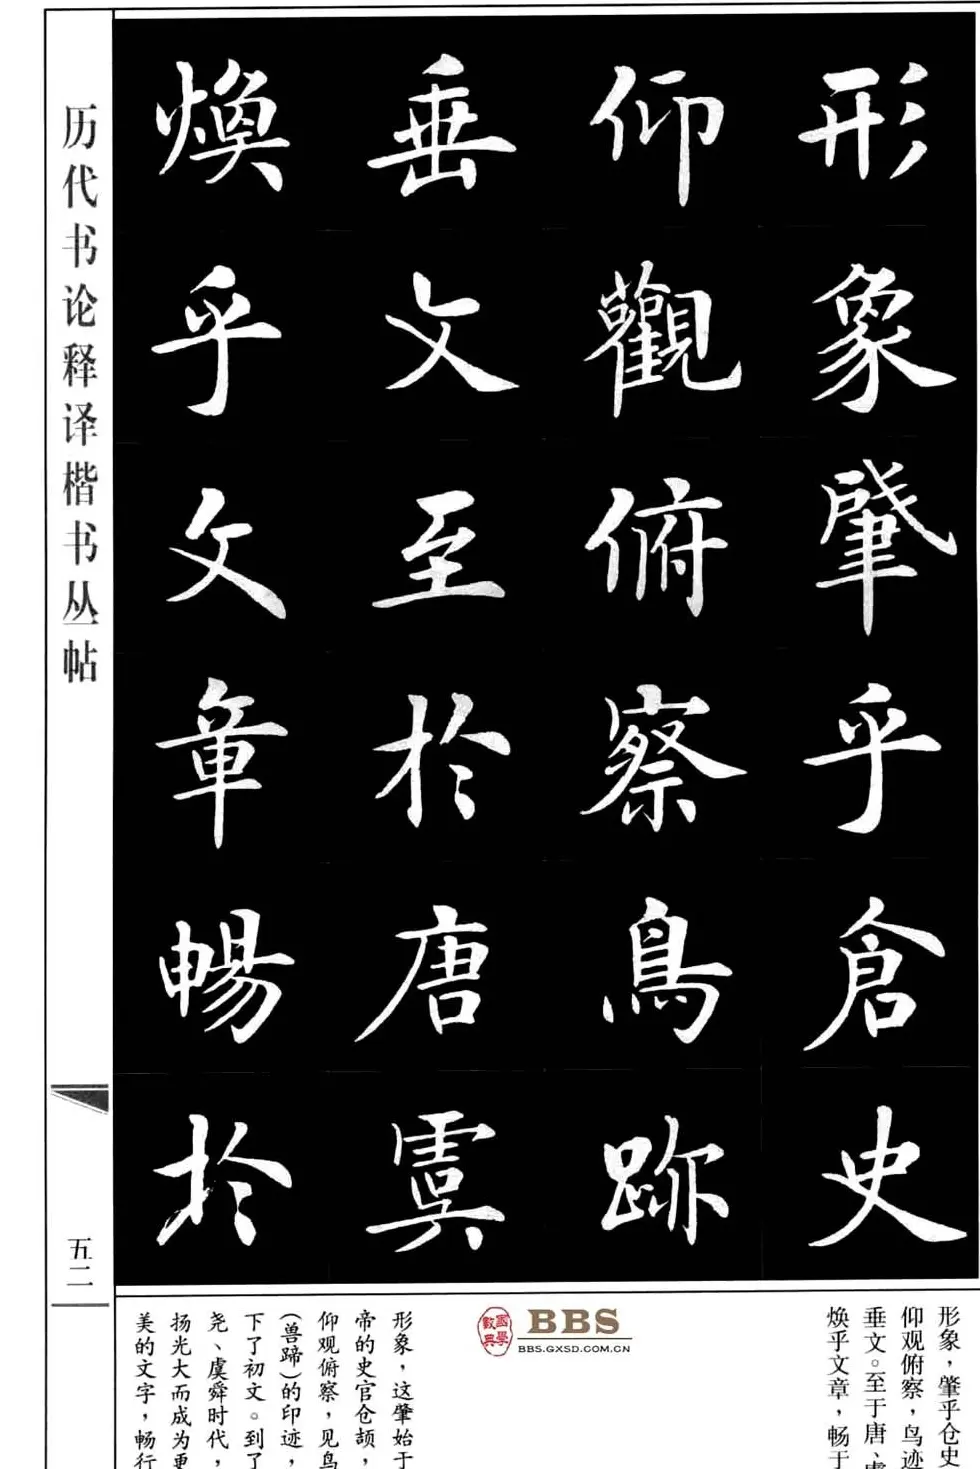 历代书论释译楷书丛帖
五二
形象肇乎倉史
仰觀俯察鳥跡
垂文至於唐虞
煥乎文章暢於
形象，肇乎仓史
仰观俯察，鸟迹
垂文。至于唐、虞
焕乎文章，畅于
國學數典
BBS
BBS.GXSD.COM.CN
形象，这肇始于
帝的史官仓颉，
仰观俯察，见鸟
(兽蹄)的印迹，
下了初文。到了
尧、虞舜时代，
扬光大而成为更
美的文字，畅行